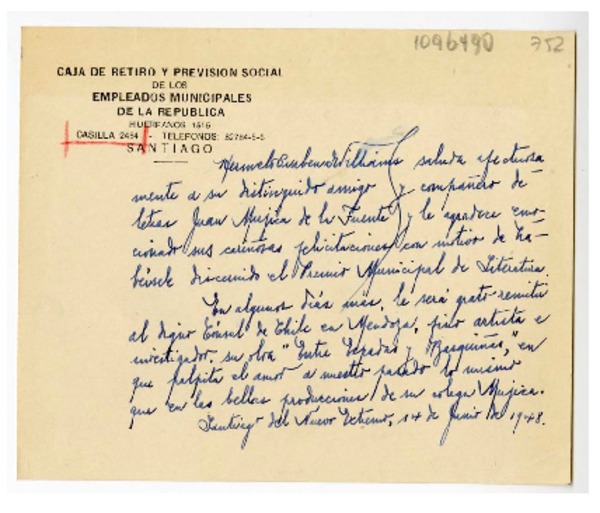 1096490 752
CAJA DE RETIRO Y PREVISION SOCIAL
DE LOS
EMPLEADOS MUNICIPALES
DE LA REPUBLICA
HUERFANOS 1515
CASILLA 2454 - TELEFONOS: 82764-5-6
SANTIAGO
saluda afectuosa
mente a su distinguido amigo y compañero de
letras Juan Mujica de la Fuente y le agradece emo-
cionado sus cariñosas felicitaciones con motivo de ha-
bérsele discernido el Premio Municipal de Literatura.
En algunos días más, le será grato remitir
al digno Cónsul de Chile en Mendoza, fino artista e
investigador, su obra "Entre Espadas y Basquiñas," en
que palpita el amor a nuestro pasado lo mismo
que en las bellas producciones de su colega Mujica.
Santiago del Nuevo Extremo, 14 de Junio de 1948.